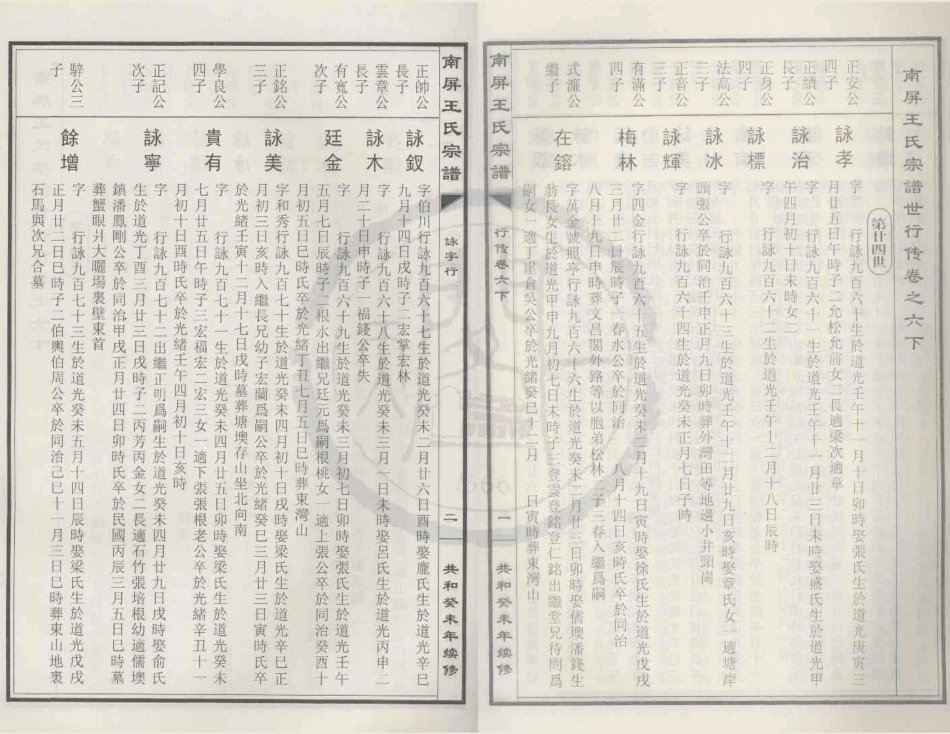 南屏王氏宗譜世行传卷之六下
第廿四世
正安公四子
詠孝
字 行詠九百六十生於道光壬午十一月十日卯時娶張氏生於道光庚寅三
月廿五日午時子二允松允前女二長適梁次適章
正績公長子
詠治
字 行詠九百六十一生於道光壬午十一月廿三日未時娶盛氏生於道光甲
午四月初十日未時女二
正身公四子
詠標
字 行詠九百六十二生於道光壬午十二月十八日辰時
法高公三子
詠冰
字 行詠九百六十三生於道光壬午十二月廿九日亥時娶章氏女一適塘岸
頭張公卒於同治壬申正月九日卯時葬外灣田等地邊小井頭崗
正音公三子
詠輝
字 行詠九百六十四生於道光癸未正月七日子時
有滿公四子
梅林
字四金行詠九百六十五生於道光癸未二月十九日寅時娶徐氏生於道光戊戌
三月廿二日辰時子一春水公卒於同治 八月十四日亥時氏卒於同治
八月十九日申時葬文昌閣外路等以胞弟松林二子三春入繼爲嗣
式濂公繼子
在鎔
字萬金號照亭行詠九百六十六生於道光癸未二月廿三日卯時娶儒墺潘錢生
翁長女生於道光甲申九月初七日未時子三登雲登銘登仁登銘出繼堂兄待問爲
嗣女一適丁屋倉吳公卒於光緒癸巳十二月 日寅時葬東灣山
南屏王氏宗譜
行传卷六下
一
共和癸未年续修
南屏王氏宗譜
詠字行
二
共和癸未年续修
正帥公長子
詠釵
字伯川行詠九百六十七生於道光癸未二月廿六日酉時娶龐氏生於道光辛巳
九月十四日戌時子二宏掌宏林
雲章公長子
詠木
字 行詠九百六十八生於道光癸未三月一日未時娶呂氏生於道光丙申二
月二十日申時子一福錢公卒失
有寬公次子
廷金
字 行詠九百六十九生於道光癸未三月初七日卯時娶張氏生於道光壬午
五月七日辰時子二根水出繼兄廷元爲嗣根桃女一適上張公卒於同治癸酉十
月初五日巳時氏卒於光緒丁丑七月五日巳時葬東灣山
正銘公三子
詠美
字和秀行詠九百七十生於道光癸未四月初十日戌時娶梁氏生於道光辛巳正
月初三日亥時入繼長兄幼子宏蘭爲嗣公卒於光緒癸巳三月廿三日寅時氏卒
於光緒壬寅十二月十七日戌時墓葬塘墺存山坐北向南
學良公四子
貴有
字 行詠九百七十一生於道光癸未四月廿五日卯時娶梁氏生於道光癸未
七月廿五日午時子三宏福宏二宏三女一適下張張根老公卒於光緒辛丑十一
月初十日酉時氏卒於光緒壬午四月初十日亥時
正記公次子
詠寧
字 行詠九百七十二出繼正明爲嗣生於道光癸未四月廿九日戌時娶俞氏
生於道光丁酉三月廿三日戌時子二丙芳丙金女二長適石竹張培根幼適儒墺
鎮潘鳳剛公卒於同治甲戌正月廿四日卯時氏卒於民國丙辰三月五日巳時墓
葬蟹眼爿大曬塲裏壁東首
騂公三子
餘增
字 行詠九百七十三生於道光癸未五月十四日辰時娶梁氏生於道光戊戌
正月廿二日巳時子二伯輿伯周公卒於同治己巳十一月三日巳時葬東山地裏
石馬與次兄合墓